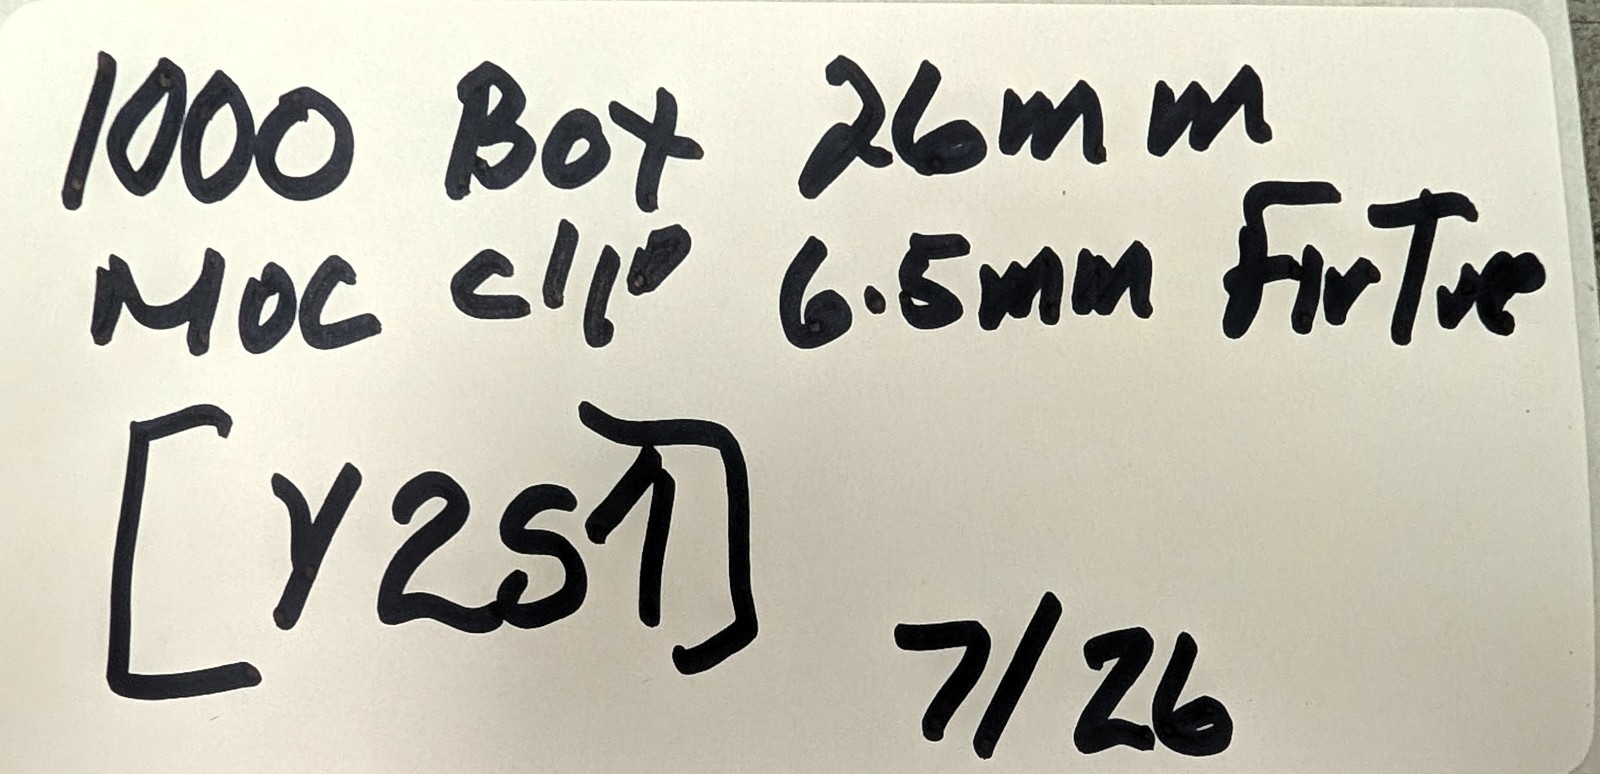 1000 Box 26mm
MOC clip 6.5mm Fir Tree
[Y2S1]
7/26